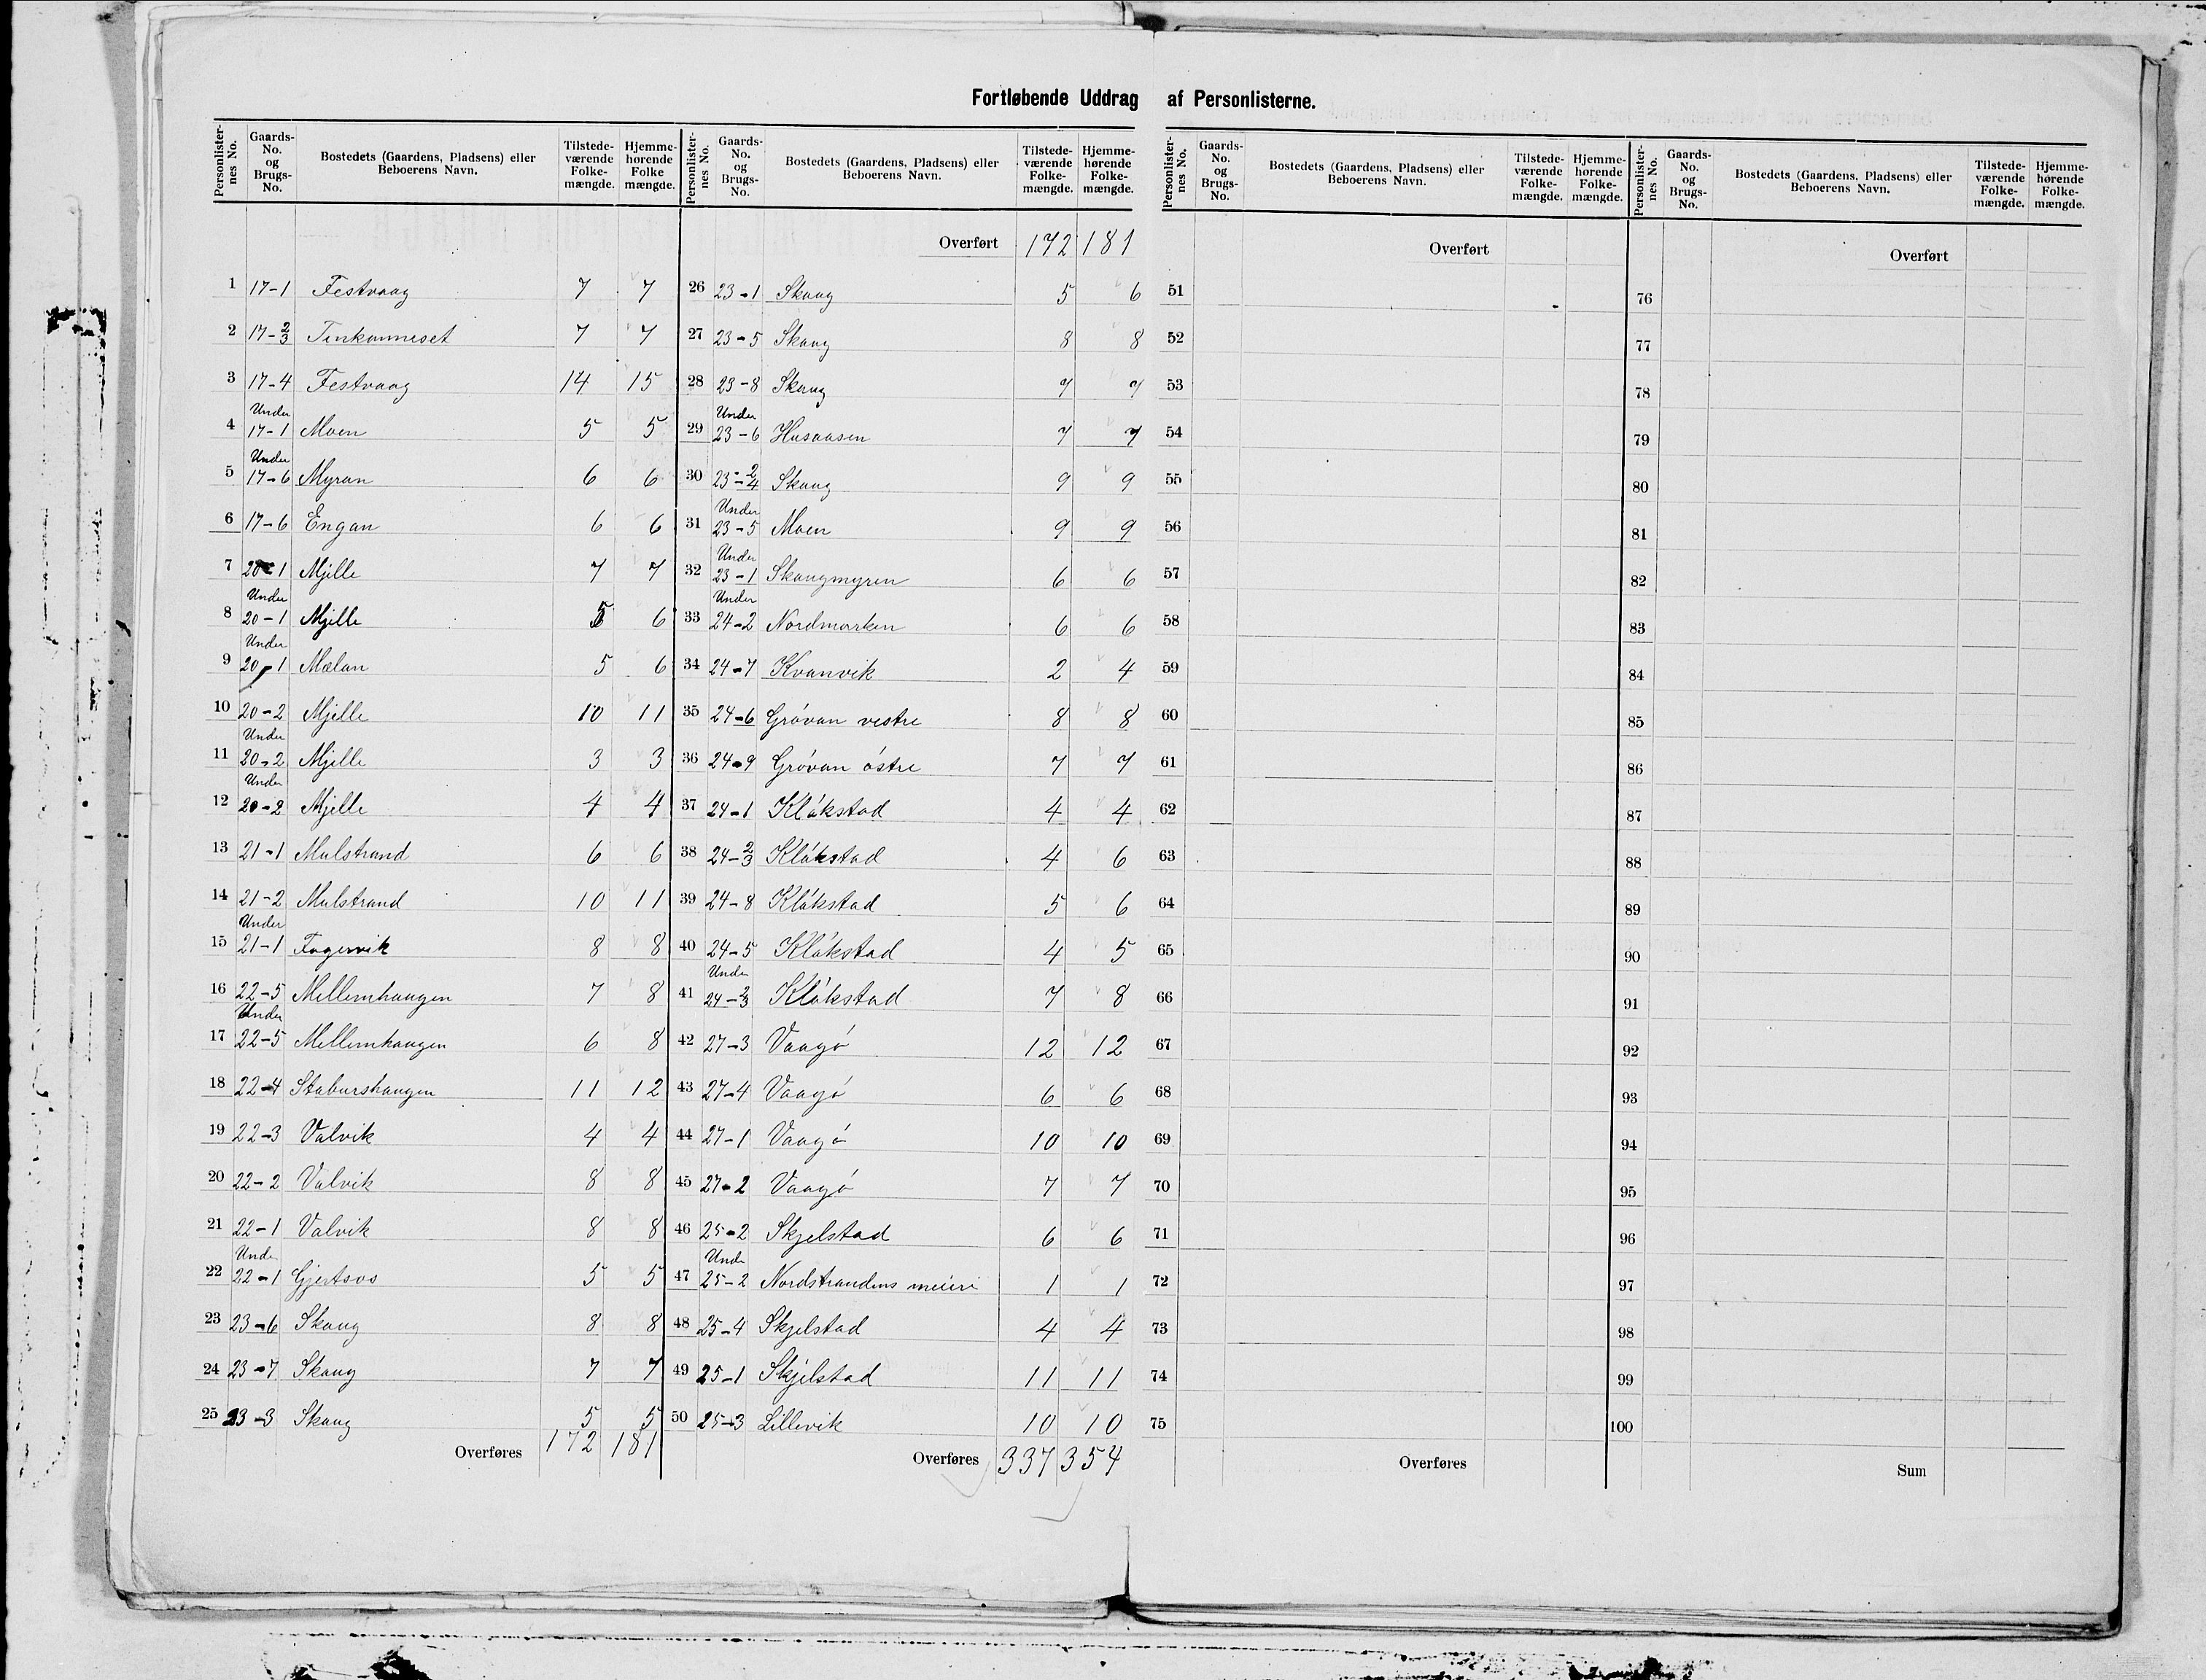 Fortløbende Uddrag af Personlisterne.
Personlister-nes No. Gaards-No. og Brugs-No. Bostedets (Gaardens, Pladsens) eller Beboerens Navn. Tilstede-værende Folke-mængde. Hjemme-hørende Folke mængde.
1 17-1 Festvaag 7 7
2 17-2/3 7 7
3 17-4 Festvaag 14 15
4 Under 17-1 Moen 5 5
5 Under 17-6 Myran 6 6
6 17-6 Engan 6 6
7 20-1 Mjelle 7 7
8 Under 20-1 Mjelle 5 6
9 Under 20-1 Mælan 5 6
10 20-2 Mjelle 10 11
11 Under 20-2 Mjelle 3 3
12 Under 20-2 Mjelle 4 4
13 21-1 Mulstrand 6 6
14 21-2 Mulstrand 10 11
15 Under 21-1 Fagervik 8 8
16 22-5 Mellemhaugen 7 8
17 Under 22-5 Mellemhaugen 6 8
18 22-4 Staburshaugen 11 12
19 22-3 Valvik 4 4
20 22-2 Valvik 8 8
21 22-1 Valvik 8 8
22 Under 22-1 Gjertsos 5 5
23 23-6 Skaug 8 8
24 23-7 Skaug 7 7
25 23-3 Skaug 5 5
Overføres 172 181
Personlister-nes No. Gaards-No. og Brugs-No. Bostedets (Gaardens, Pladsens) eller Beboerens Navn. Tilstede-værende Folke-mængde. Hjemme-hørende Folke-mængde.
Overført 172 181
26 23-1 Skaug 5 6
27 23-5 Skaug 8 8
28 23-8 Skaug 7 7
29 Under 23-6 Husaasen 7 7
30 23-2/4 Skaug 9 9
31 Under 23-5 Moen 9 9
32 Under 23-1 Skaugmyren 6 6
33 Under 24-2 Nordmarken 6 6
34 24-7 Kvanvik 2 4
35 24-6 Gróvan vestre 8 8
36 24-9 Gróvan óstre 7 7
37 24-1 Klókstad 4 4
38 24-2/3 Klókstad 4 6
39 24-8 Klókstad 5 6
40 24-5 Klókstad 4 5
41 Under 24-2/3 Klókstad 7 8
42 27-3 Vaagó 12 12
43 27-4 Vaagó 6 6
44 27-1 Vaagó 10 10
45 27-2 Vaagó 7 7
46 25-2 Skjelstad 6 6
47 Unde 25-2 Nordstrandens meieri 1 1
48 25-4 Skjelstad 4 4
49 25-1 Skjelstad 11 11
50 25-3 Lillevik 10 10
Overføres 337 354
Personlister-nes No. Gaards-No. og Brugs-No. Bostedets (Gaardens, Pladsens) eller Beboerens Navn. Tilstede-værende Folke-mængde. Hjemme-hørende Folke-mængde.
Overført
51
52
53
54
55
56
57
58
59
60
61
62
63
64
65
66
67
68
69
70
71
72
73
74
75
Overføres
Personlister-nes No. Gaards-No. og Brugs-No. Bostedets (Gaardens, Pladsens) eller Beboerens Navn. Tilstede-værende Folke-mængde. Hjemme-hørende Folke-mængde.
Overført
76
77
78
79
80
81
82
83
84
85
86
87
88
89
90
91
92
93
94
95
96
97
98
99
100
Sum